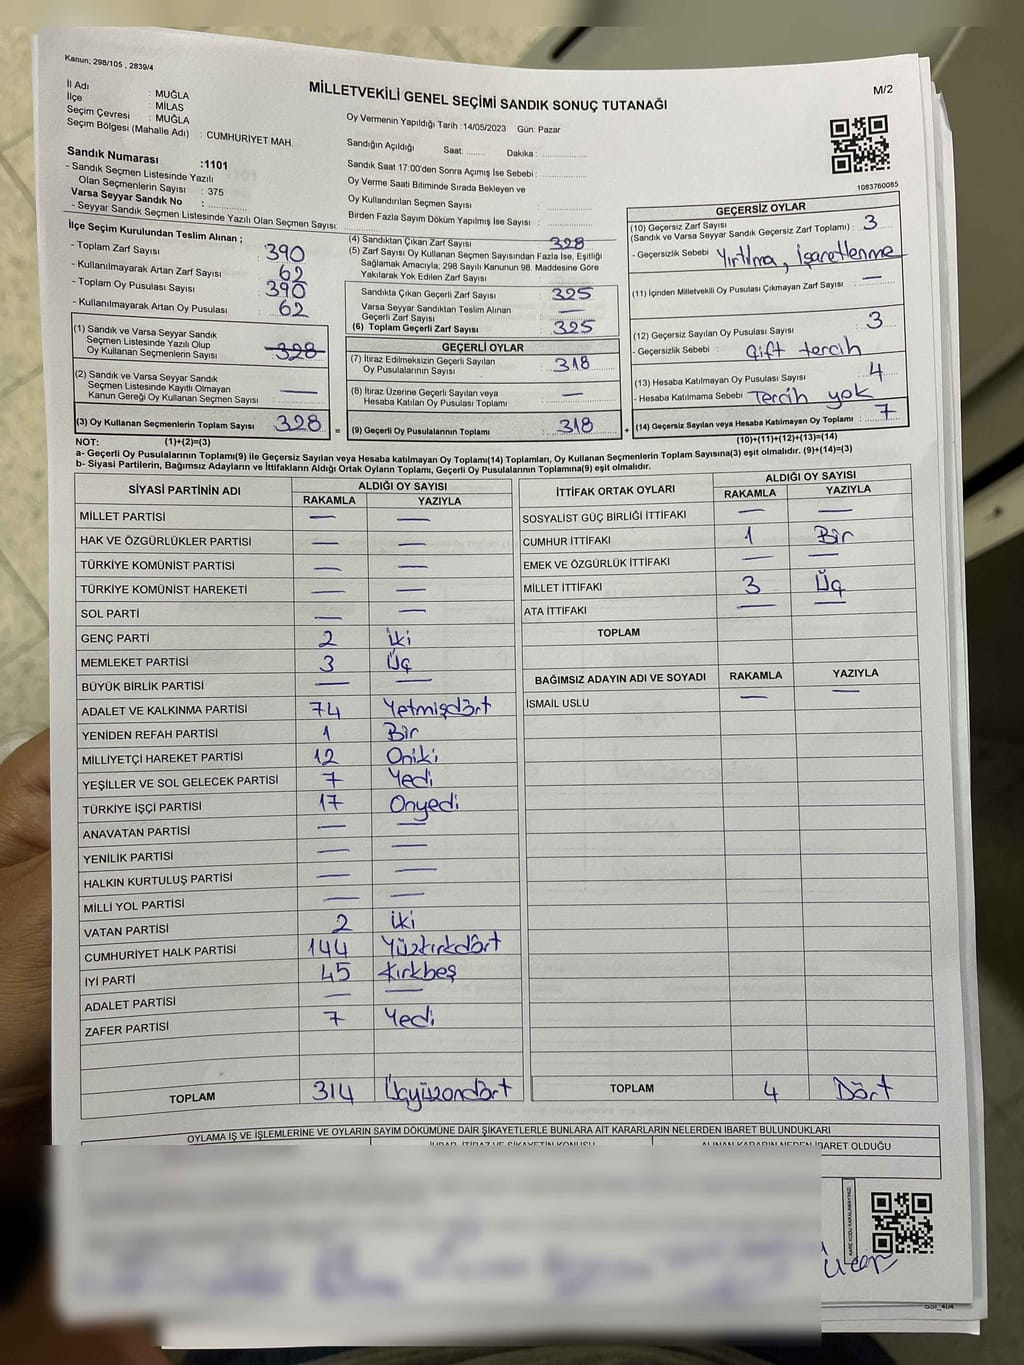 Kanun; 298/105 , 2839/4
İl Adı : MUĞLA
İlçe : MİLAS
Seçim Çevresi : MUĞLA
Seçim Bölgesi (Mahalle Adı) : CUMHURİYET MAH.
Sandık Numarası :1101
- Sandık Seçmen Listesinde Yazılı
Olan Seçmenlerin Sayısı : 375
Varsa Seyyar Sandık No : ............
- Seyyar Sandık Seçmen Listesinde Yazılı Olan Seçmen Sayısı: ............
MİLLETVEKİLİ GENEL SEÇİMİ SANDIK SONUÇ TUTANAĞI
M/2
Oy Vermenin Yapıldığı Tarih :14/05/2023 Gün: Pazar
Sandığın Açıldığı Saat: ........ Dakika : ............
Sandık Saat 17:00'den Sonra Açımış İse Sebebi : ............
Oy Verme Saati Bitiminde Sırada Bekleyen ve
Oy Kullandırılan Seçmen Sayısı : ............
Birden Fazla Sayım Döküm Yapılmış İse Sayısı : ............
1083760085
İlçe Seçim Kurulundan Teslim Alınan ;
- Toplam Zarf Sayısı : 390
- Kullanılmayarak Artan Zarf Sayısı : 62
- Toplam Oy Pusulası Sayısı : 390
- Kullanılmayarak Artan Oy Pusulası : 62
(1) Sandık ve Varsa Seyyar Sandık
Seçmen Listesinde Yazılı Olup
Oy Kullanan Seçmenlerin Sayısı : 328
(2) Sandık ve Varsa Seyyar Sandık
Seçmen Listesinde Kayıtlı Olmayan
Kanun Gereği Oy Kullanan Seçmen Sayısı : —
(3) Oy Kullanan Seçmenlerin Toplam Sayısı : 328 =
(4) Sandıktan Çıkan Zarf Sayısı : 328
(5) Zarf Sayısı Oy Kullanan Seçmen Sayısından Fazla İse, Eşitliği
Sağlamak Amacıyla, 298 Sayılı Kanunun 98. Maddesine Göre
Yakılarak Yok Edilen Zarf Sayısı : ............
Sandıkta Çıkan Geçerli Zarf Sayısı : 325
Varsa Seyyar Sandıktan Teslim Alınan
Geçerli Zarf Sayısı : —
(6) Toplam Geçerli Zarf Sayısı : 325
GEÇERLİ OYLAR
(7) İtiraz Edilmeksizin Geçerli Sayılan
Oy Pusulalarının Sayısı : 318
(8) İtiraz Üzerine Geçerli Sayılan veya
Hesaba Katılan Oy Pusulası Toplamı : —
(9) Geçerli Oy Pusulalarının Toplamı : 318 +
GEÇERSİZ OYLAR
(10) Geçersiz Zarf Sayısı : 3
(Sandık ve Varsa Seyyar Sandık Geçersiz Zarf Toplamı)
- Geçersizlik Sebebi : Yırtılma, İşaretlenme
(11) İçinden Milletvekili Oy Pusulası Çıkmayan Zarf Sayısı : —
(12) Geçersiz Sayılan Oy Pusulası Sayısı : 3
- Geçersizlik Sebebi : Çift tercih
(13) Hesaba Katılmayan Oy Pusulası Sayısı : 4
- Hesaba Katılmama Sebebi : Tercih yok
(14) Geçersiz Sayılan veya Hesaba Katılmayan Oy Toplamı : 7
NOT: (1)+(2)=(3)
(10)+(11)+(12)+(13)=(14)
a- Geçerli Oy Pusulalarının Toplamı(9) ile Geçersiz Sayılan veya Hesaba katılmayan Oy Toplamı(14) Toplamları, Oy Kullanan Seçmenlerin Toplam Sayısına(3) eşit olmalıdır. (9)+(14)=(3)
b- Siyasi Partilerin, Bağımsız Adayların ve İttifakların Aldığı Ortak Oyların Toplamı, Geçerli Oy Pusulalarının Toplamına(9) eşit olmalıdır.
SİYASİ PARTİNİN ADI ALDIĞI OY SAYISI
RAKAMLA YAZIYLA
MİLLET PARTİSİ — —
HAK VE ÖZGÜRLÜKLER PARTİSİ — —
TÜRKİYE KOMÜNİST PARTİSİ — —
TÜRKİYE KOMÜNİST HAREKETİ — —
SOL PARTİ — —
GENÇ PARTİ 2 İki
MEMLEKET PARTİSİ 3 Üç
BÜYÜK BİRLİK PARTİSİ — —
ADALET VE KALKINMA PARTİSİ 74 Yetmişdört
YENİDEN REFAH PARTİSİ 1 Bir
MİLLİYETÇİ HAREKET PARTİSİ 12 Oniki
YEŞİLLER VE SOL GELECEK PARTİSİ 7 Yedi
TÜRKİYE İŞÇİ PARTİSİ 17 Onyedi
ANAVATAN PARTİSİ — —
YENİLİK PARTİSİ — —
HALKIN KURTULUŞ PARTİSİ — —
MİLLİ YOL PARTİSİ — —
VATAN PARTİSİ 2 İki
CUMHURİYET HALK PARTİSİ 144 Yüzkırkdört
İYİ PARTİ 45 Kırkbeş
ADALET PARTİSİ — —
ZAFER PARTİSİ 7 Yedi
TOPLAM 314 Üçyüzondört
İTTİFAK ORTAK OYLARI ALDIĞI OY SAYISI
RAKAMLA YAZIYLA
SOSYALİST GÜÇ BİRLİĞİ İTTİFAKI — —
CUMHUR İTTİFAKI 1 Bir
EMEK VE ÖZGÜRLÜK İTTİFAKI — —
MİLLET İTTİFAKI 3 Üç
ATA İTTİFAKI — —
TOPLAM
BAĞIMSIZ ADAYIN ADI VE SOYADI RAKAMLA YAZIYLA
İSMAİL USLU — —
TOPLAM 4 Dört
OYLAMA İŞ VE İŞLEMLERİNE VE OYLARIN SAYIM DÖKÜMÜNE DAİR ŞİKAYETLERLE BUNLARA AİT KARARLARIN NELERDEN İBARET BULUNDUKLARI
İHBAR, İTİRAZ VE ŞİKAYETİN KONUSU ALINAN KARARIN NEDEN İBARET OLDUĞU
KARE KODU KARALAMAYINIZ